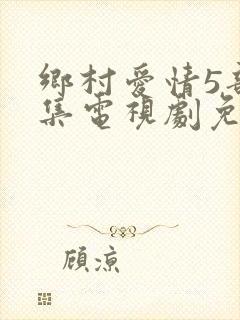 鄉村愛情5
集電視劇免
顧涼